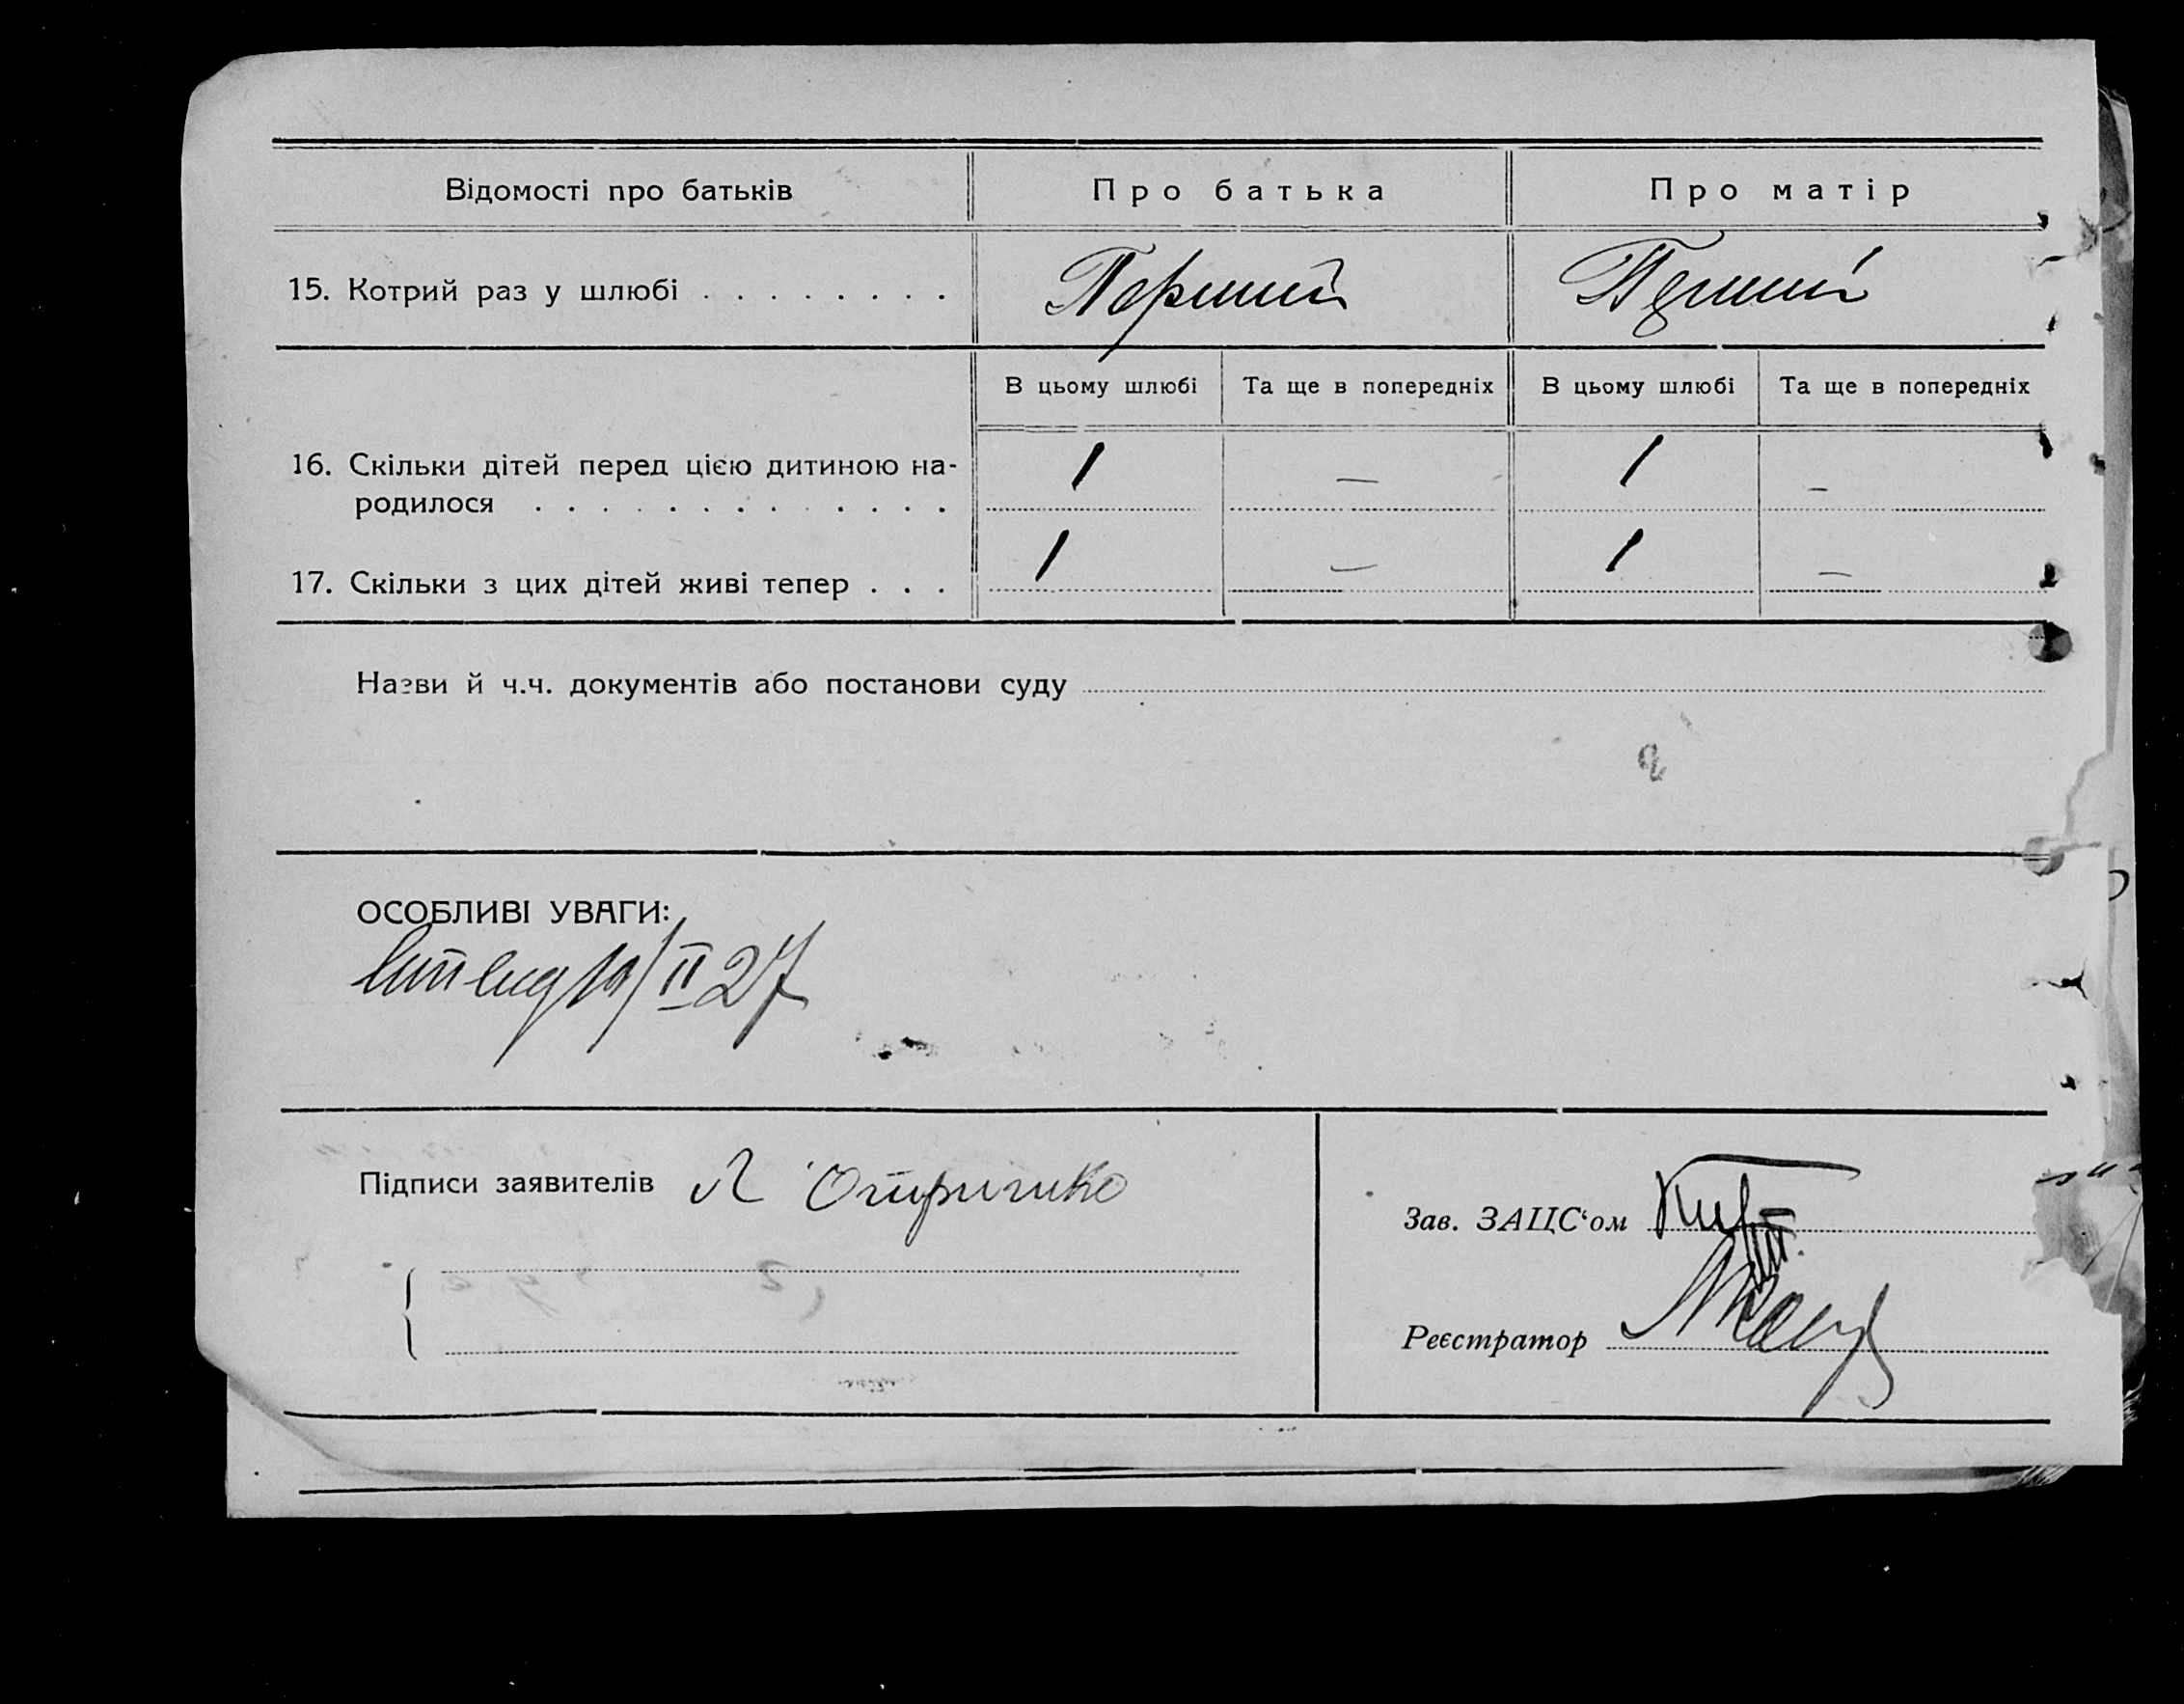 Відомості про батьків Про батька Про матір
15. Котрий раз у шлюбі . . . . . . . . Перший Перший
В цьому шлюбі Та ще в попередніх В цьому шлюбі Та ще в попередніх
16. Скільки дітей перед цією дитиною на-
родилося . . . . . . . . . . . . . . 1 — 1 —
17. Скільки з цих дітей живі тепер . . . 1 — 1 —
Назви й ч.ч. документів або постанови суду
ОСОБЛИВІ УВАГИ:
II 27
Підписи заявителів Л
Зав. ЗАЦС‘ом
Реєстратор